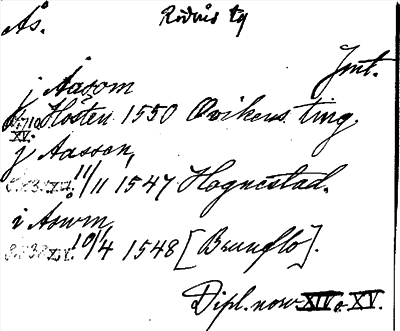 Ås. Rödöns tg
Jmt.
j Aasom
Hösten 1550 Ovikens ting.
XV.
j Aassen,
11/11 1547 Hognestad.
i Aswm,
10/4 1548 [Brunflo].
Dipl. norv. XIV o. XV.